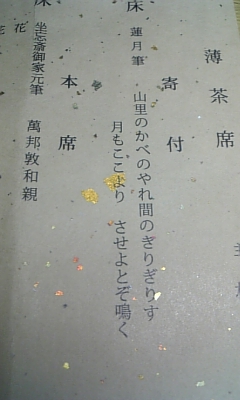 薄茶席
寄付
床 蓮月筆 山里のかべのやれ間のきりぎりす
月もここより させよとぞ鳴く
本席
床 坐忘斎御家元筆 萬邦敦和親
花